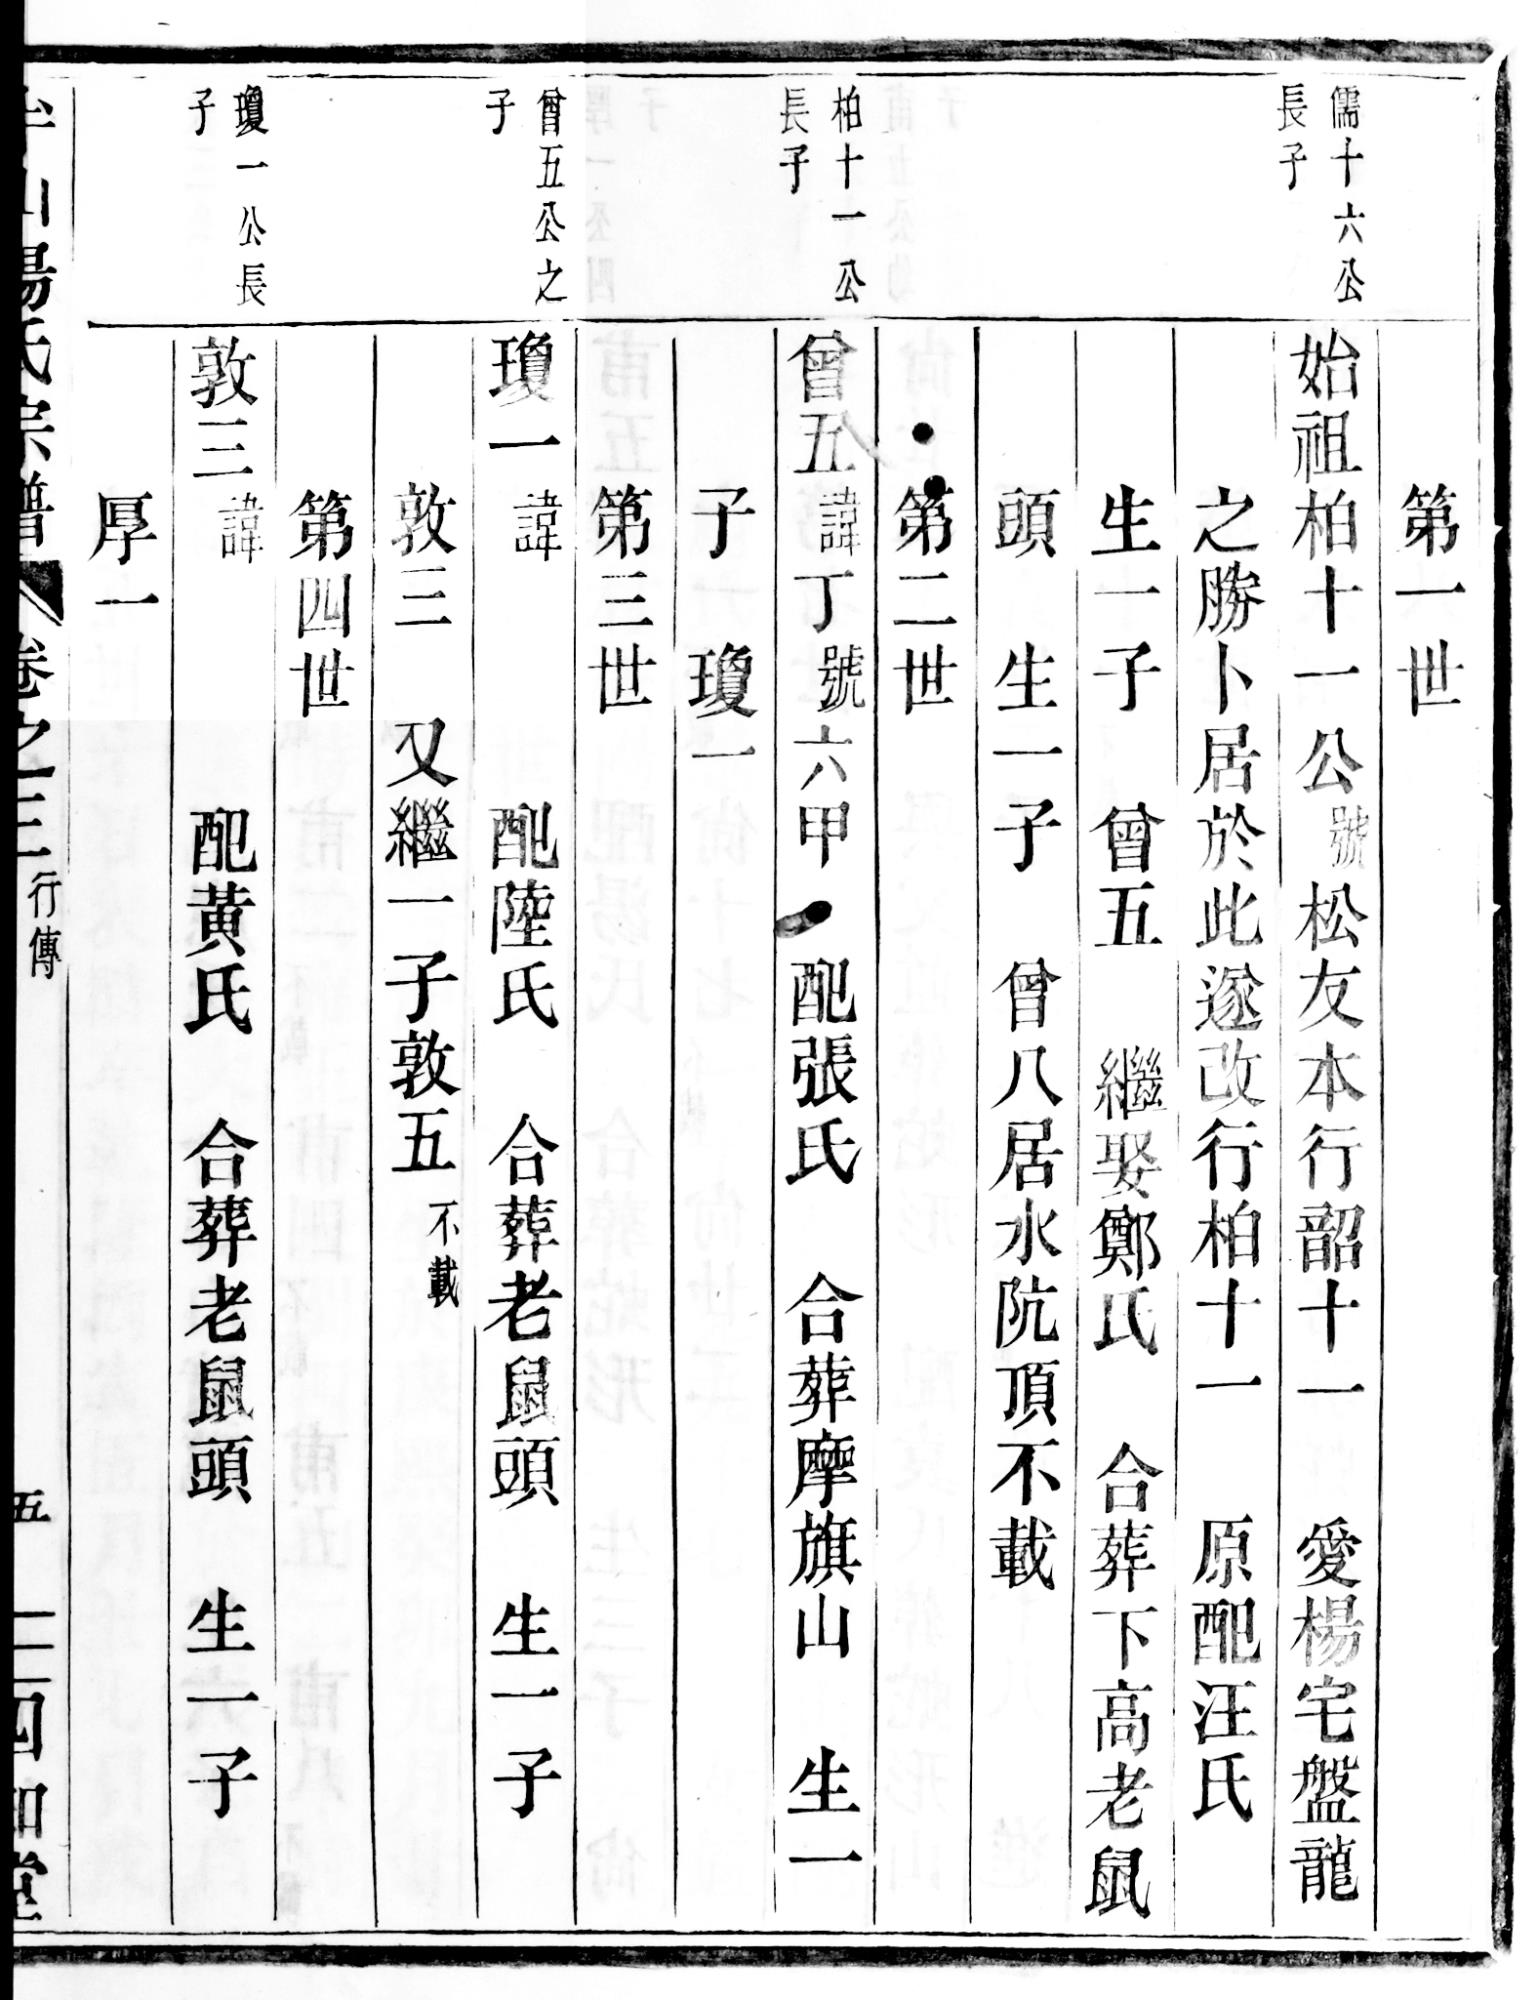 第一世
儒十六公
長子
始祖柏十一公號松友本行韶十一 愛楊宅盤龍
之勝卜居於此遂改行柏十一 原配汪氏
生一子 曾五 繼娶鄭氏 合葬下高老鼠
頭 生一子 曾八居水阬頂不載
第二世
柏十一公
長子
曾五諱丁號六甲 配張氏 合葬摩旗山 生一
子 瓊一
第三世
曾五公之
子
瓊一諱 配陸氏 合葬老鼠頭 生一子
敦三 又繼一子敦五不載
第四世
瓊一公長
子
敦三諱 配黃氏 合葬老鼠頭 生一子
厚一
山湯氏宗譜 卷之三 行傳 五 四知堂